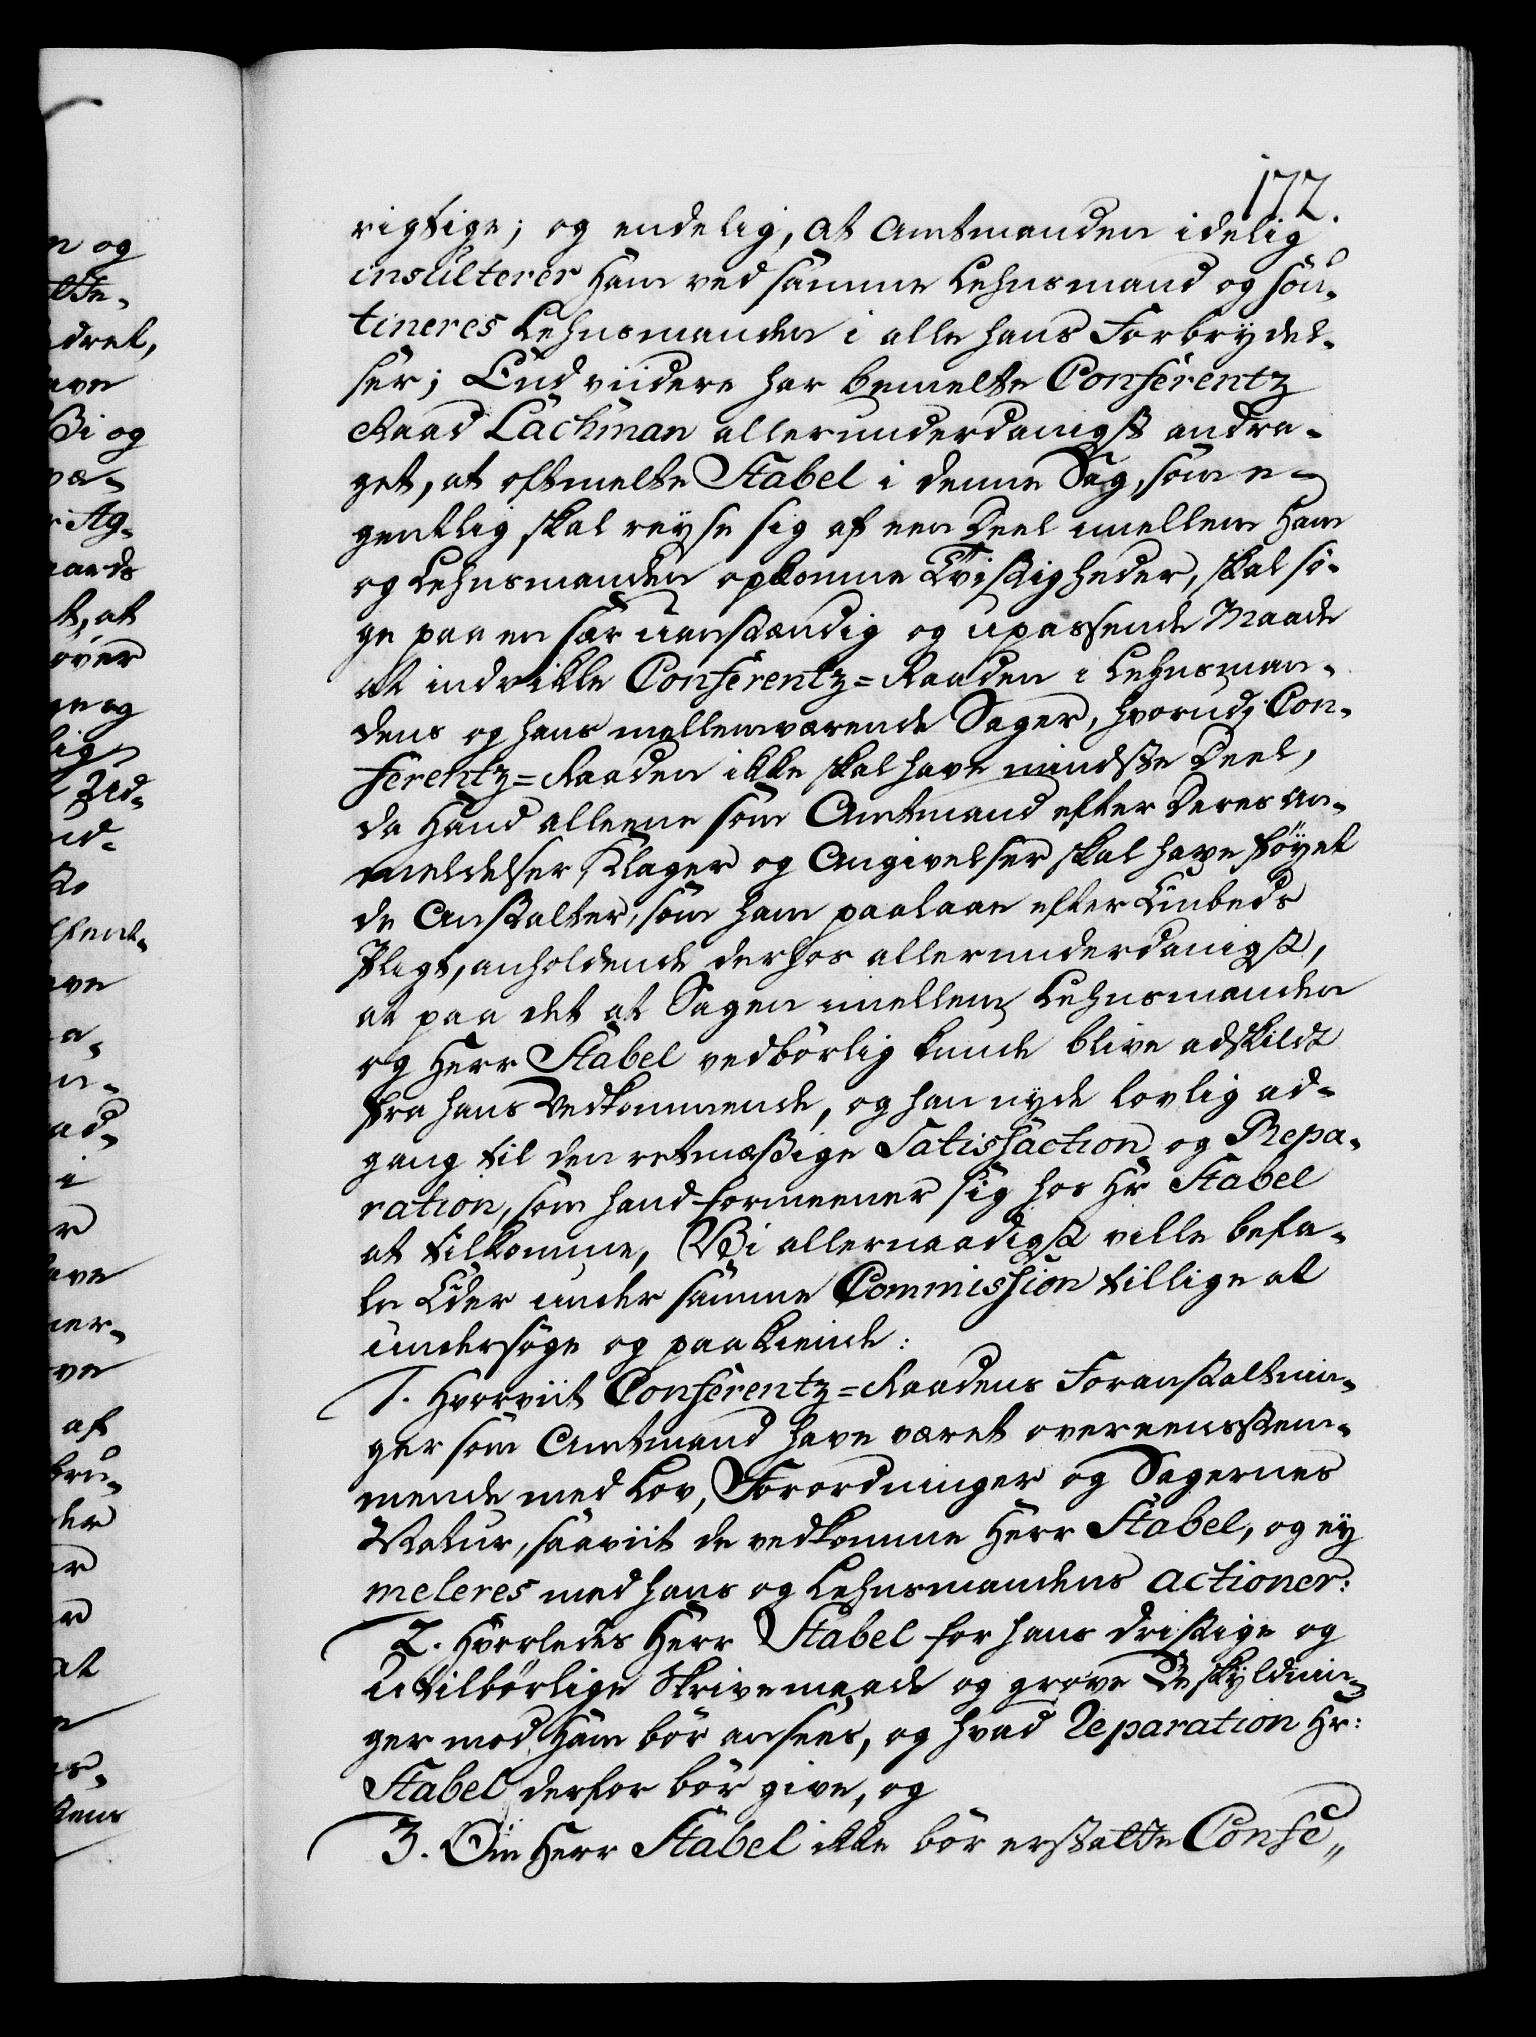 172.
rigtige; og endelig, at Amtmanden idelig
insulterer Ham ved samme Lehnsmand og sou-
tineres Lehnsmanden i alle hans Forbrydel-
ser; End viidere har bemelte Conferentz
Raad Lachman allerunderdanigst andra-
get, at oftmelte Stabel i denne Sag, som e-
gentlig skal reyse sig af een Deel imellem Ham
og Lehnsmanden opkomne Tvistigheder, skal sö-
ge paa en sær uanstændig og upassende Maade
at indvikle Conferentz=Raaden i Lehnsman-
dens og hans mellemværende Sager, hvorudj Con-
ferentz=Raaden ikke skal have mindste Deel,
da Hand alleene som Amtmand efter Deres An-
meldelser, Klager og Angivelser skal have föyet
de Anstalter, som ham paalaae efter Embeds
Pligt, anholdende derhos allerunderdanigst,
at paa det at Sagen imellem Lehnsmanden
og Herr Stabel vedbörlig kunde blive adskildt
fra hans Vedkommende, og han nyde lovlig ad-
gang til den retmæssige Satisfaction og Repa-
ration, som hand formeener sig hos Hr Stabel
at tilkomme, Vi allernaadigst ville befa-
le Eder under samme Commission tillige at
undersöge og paakiende:
1. Hvorviit Conferentz=Raadens Foranstaltnin-
ger som Amtmand have været overeensstem-
mende med Lov, Forordninger og Sagernes
Natur, saaviit de vedkomme Herr Stabel, og ey
meleres med hans og Lehnsmandens actioner:
2. Hvorledes Herr Stabel for hans dristige og
utilbörlige Skrivemaade og grove Beskyldnin-
ger mod Ham bör ansees, og hvad Reparation Hr:
Stabel derfor bör give, og
3. Om Herr Stabel ikke bör erstatte Confe„
n og
dret,
ave
Vi og
t, at
over
ge og
lig
ave
i
r
ave
ner-
ve
af
bru-
der
er
r
at